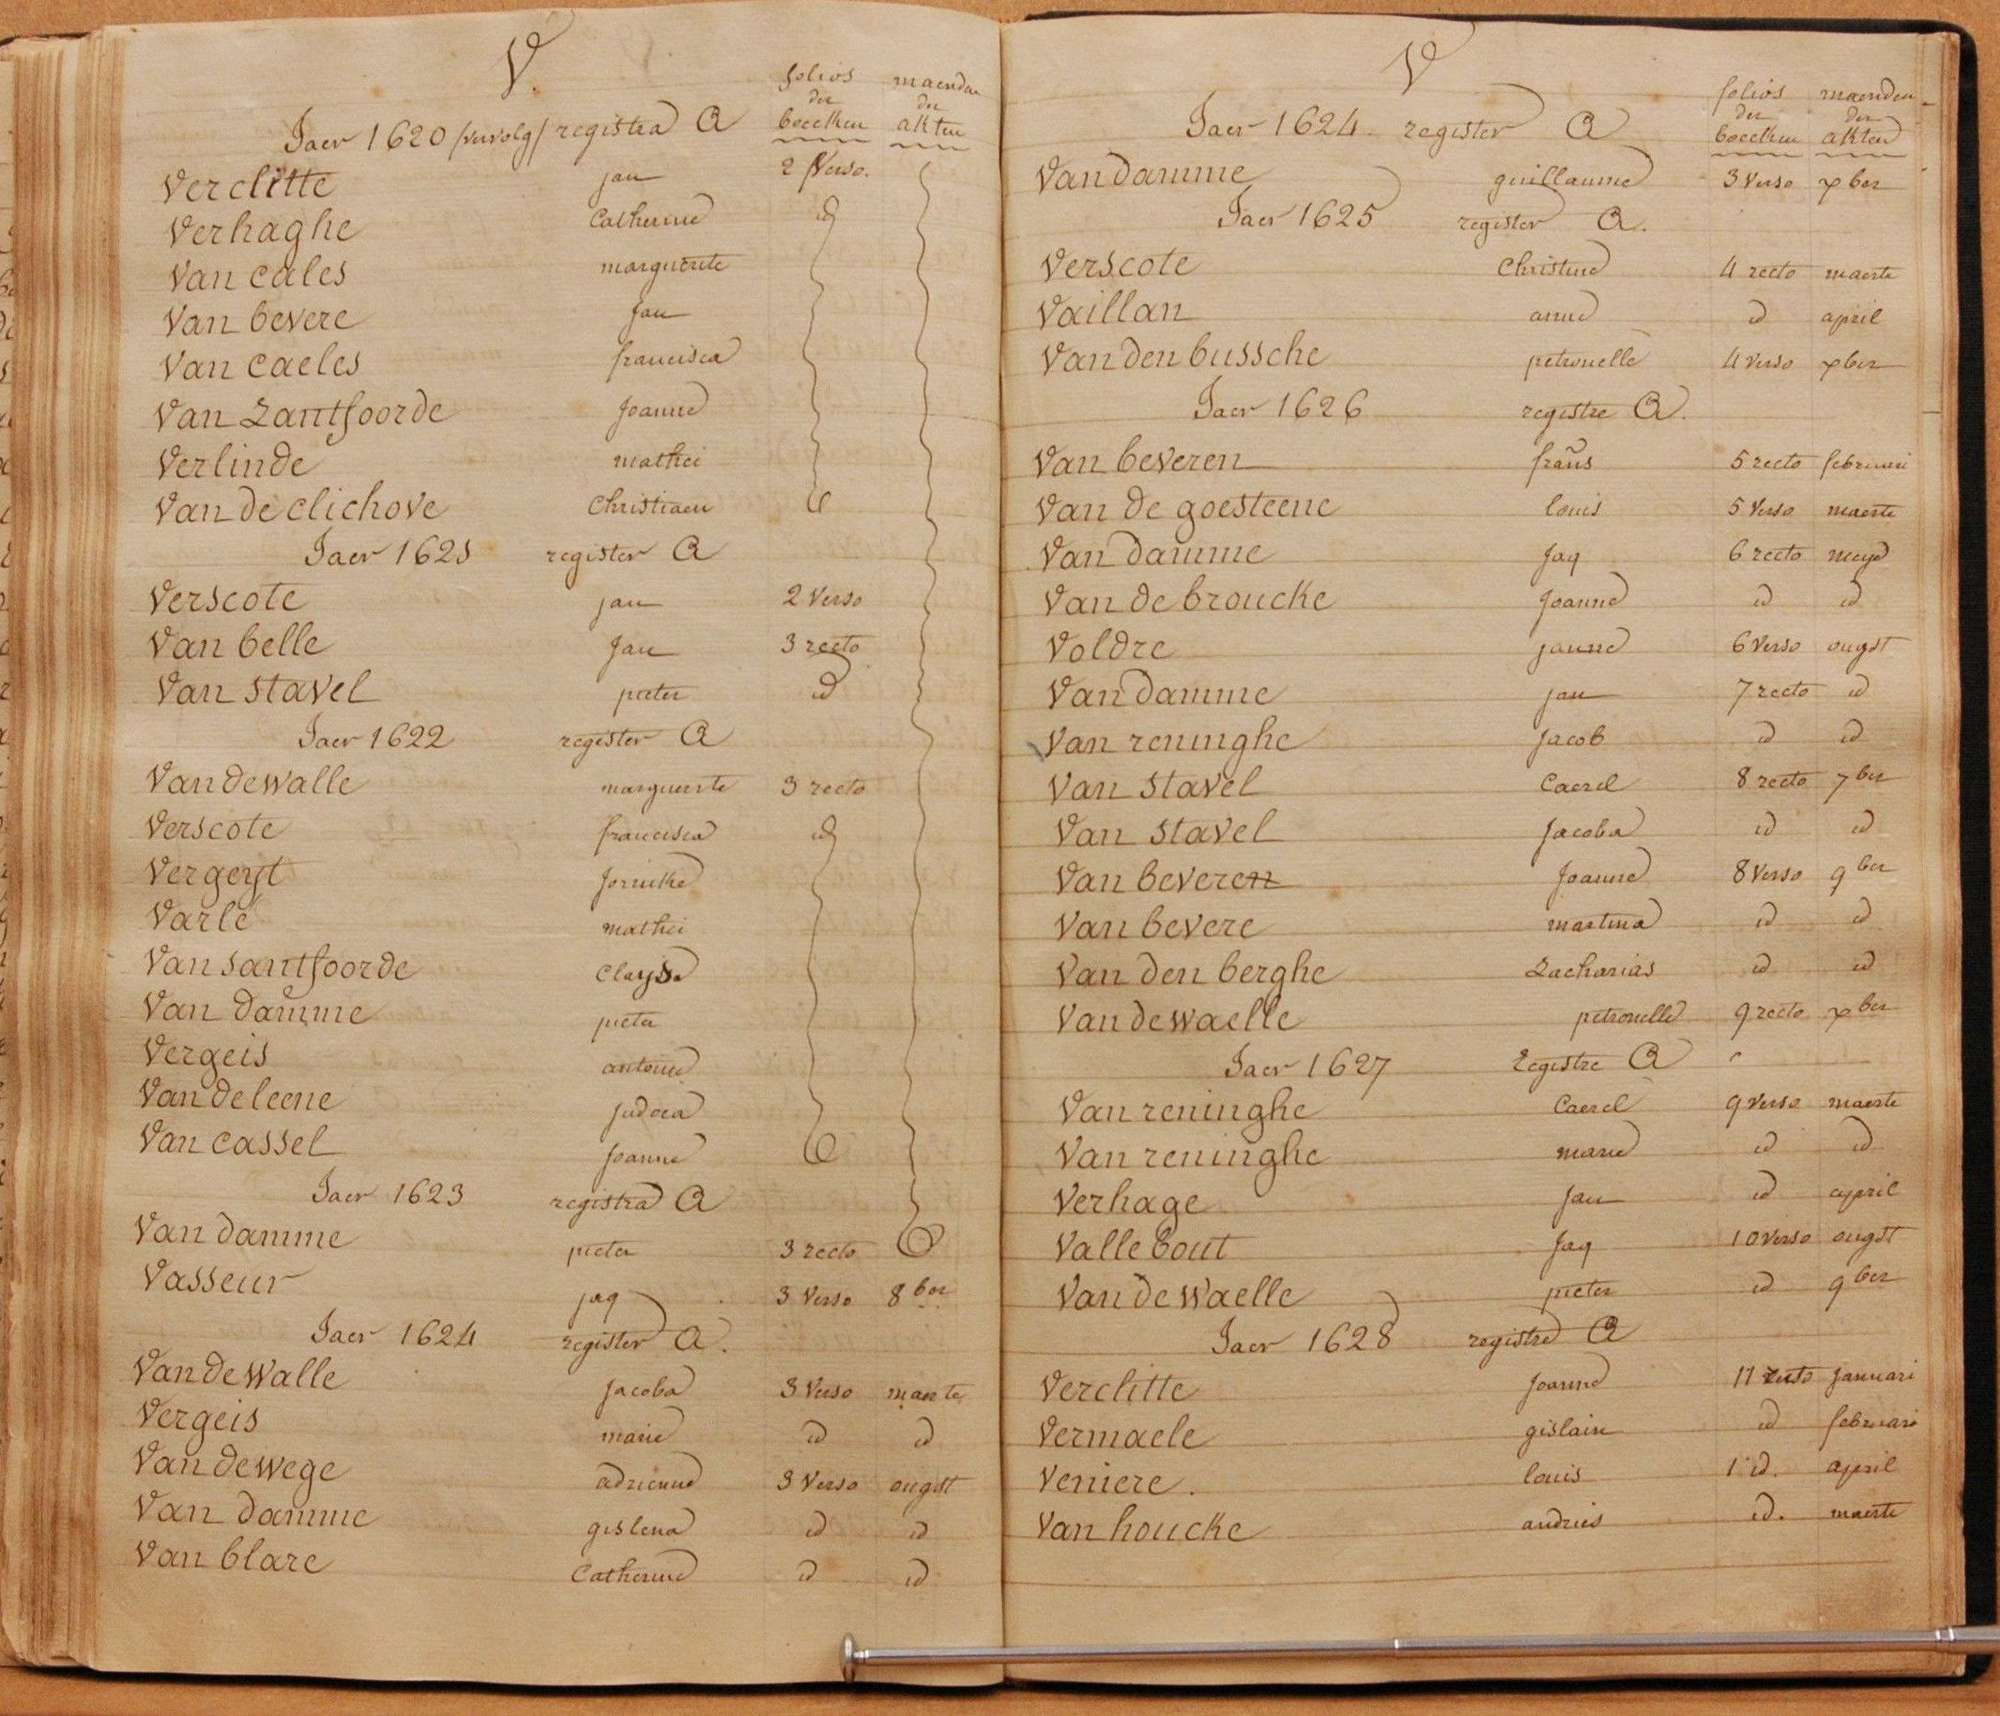 V.
folios der boecken
maenden der akten
Jaer 1620 /vervolg/ registra A
Verclitte jan 2 Verso.
Verhaghe Catherine id
Van cales marguerite
Van bevere Jan
Van caeles francisca
Van Zantfoorde Joanne
Verlinde mathei
Van de clichove Christiaen
Jaer 1621 register A
Verscote jan 2 Verso
Van belle Jan 3 recto
Van stavel pieter id
Jaer 1622 register A
Van de walle marguerite 3 recto
Verscote francisca id
Vergeyt
Varle mathei
Van santfoorde
Van damme pieter
Vergeis antoine
Van de leene Judoca
Van cassel Joanne
Jaer 1623 registra A
Van damme pieter 3 recto
Vasseur jaq 3 Verso 8ber
Jaer 1624 register A.
Van de Walle Jacoba 3 Verso maerte
Vergeis marie id id
Van de wege adrienne 3 Verso ougst
Van damme gislena id id
Van blare Catherine id id
V
folios der boecken
maenden der akten
Jaer 1624 register A
Van damme guillaume 3 Verso xber
Jaer 1625 register A.
Verscote Christine 4 recto maerte
Vaillan anne id april
Van den bussche petronelle 4 Verso xber
Jaer 1626 registre A.
Van beveren frans 5 recto februari
Van de goesteene louis 5 Verso maerte
Van damme Jaq 6 recto meye
Van de broucke Joanne id id
Voldre janne 6 Verso ougst
Van damme jan 7 recto id
Van reninghe Jacob id id
Van stavel Caerel 8 recto 7ber
Van stavel Jacoba id id
Van beveren Joanne 8 Verso 9ber
Van bevere martina id id
Van den berghe Zacharias id id
Van de waelle petronelle 9 recto xber
Jaer 1627 Registre A
Van reninghe Caerel 9 Verso maerte
Van reninghe marie id id
Verhage Jan id april
Valle bout Jaq 10 Verso ougst
Van de waelle pieter id 9ber
Jaer 1628 registre A
Verclitte Joanne 11 recto Januari
Vermaele gislain id februari
Veniere. louis id. april
Van houcke andries id. maerte